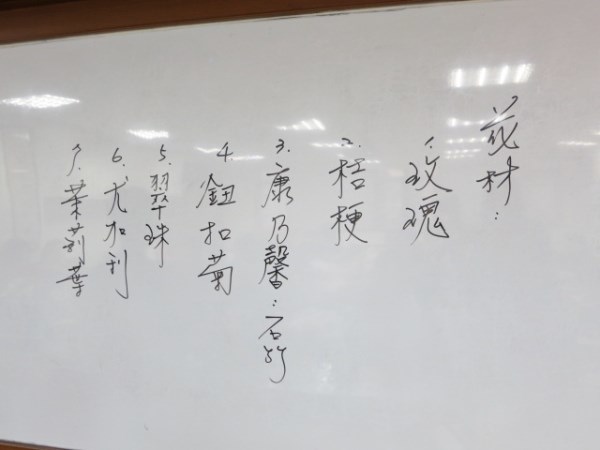 花材：
1.玫瑰
2.桔梗
3.康乃馨：石竹
4.鈕扣菊
5.翠珠
6.尤加利
7.茉莉葉